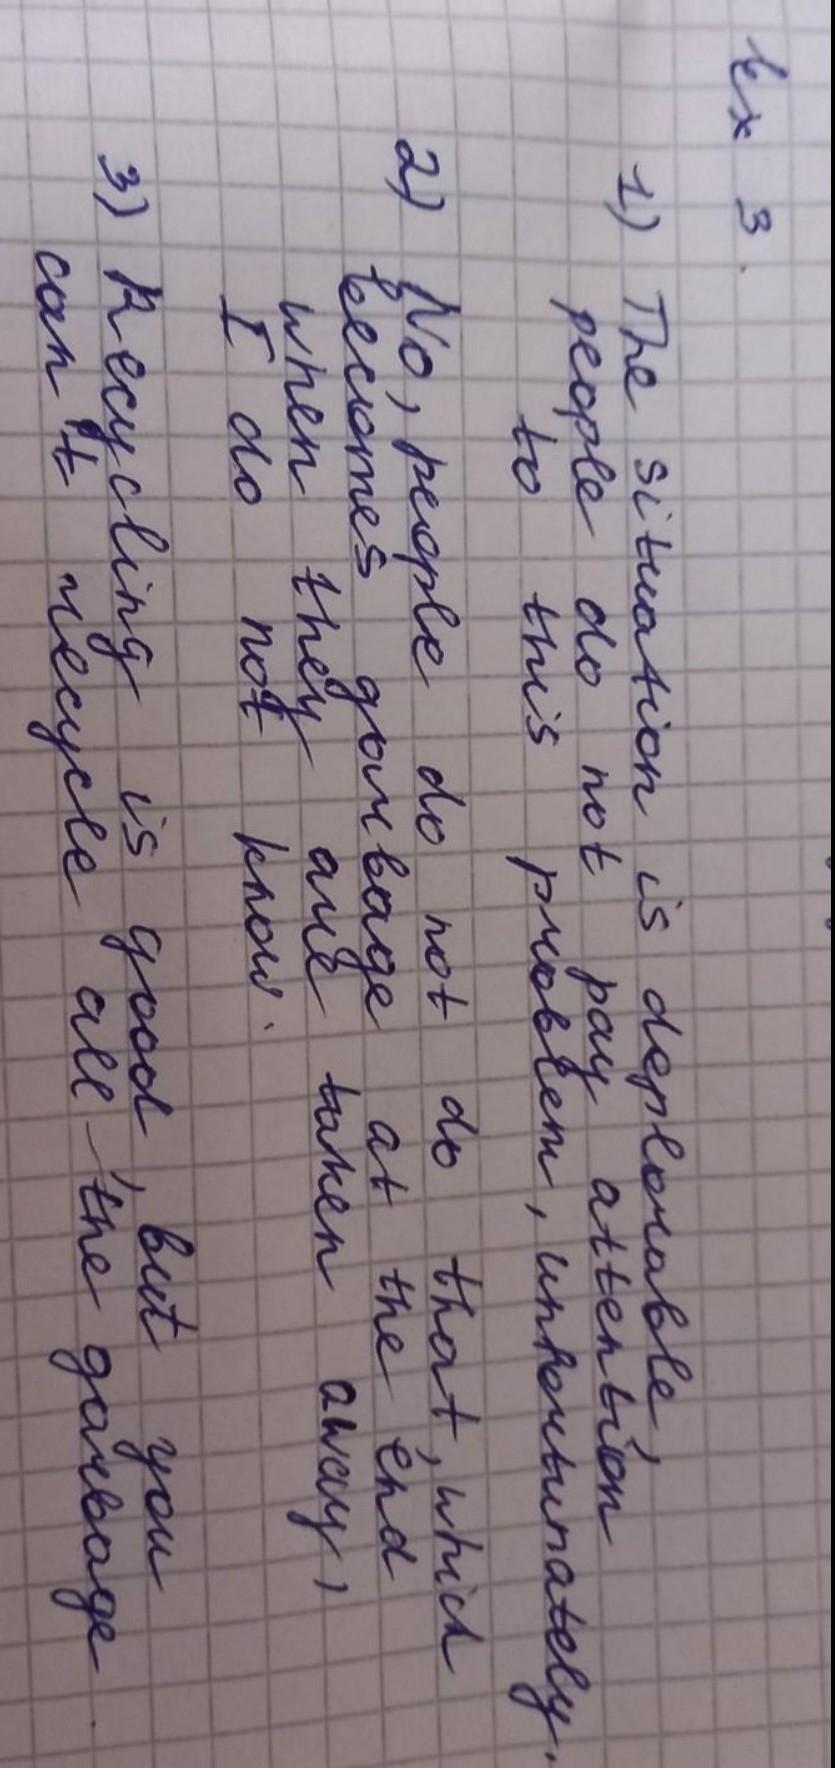 Ex 3.
1) The situation is deplorable,
people do not pay attention
to this problem, unfortunately.
2) No, people do not do that, which
becomes garbage at the end
when they are taken away,
I do not know.
3) Recycling is good, but you
can't recycle all the garbage.